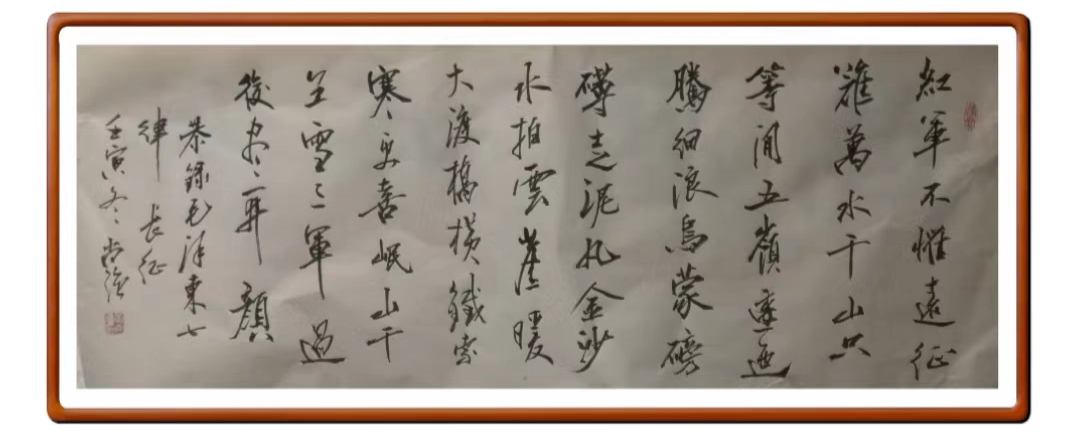 紅軍不怕遠征
難萬水千山只
等閒五嶺逶迤
騰細浪烏蒙磅
礴走泥丸金沙
水拍雲崖暖
大渡橋橫鐵索
寒更喜岷山千
里雪三軍過
後盡開顏
恭錄毛澤東七
律 長征
壬寅冬